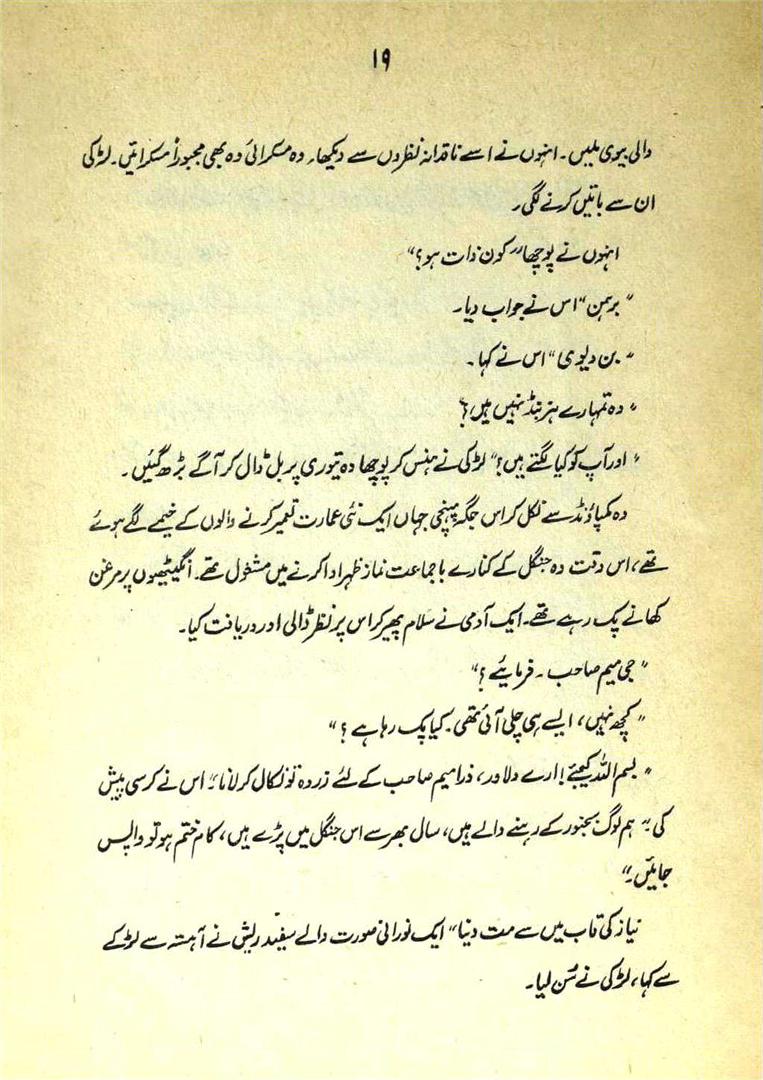 ۱۹
والی بیوی ملیں۔ انہوں نے اسے ناقدانہ نظروں سے دیکھا۔ وہ مسکرائی وہ بھی مجبوراً مسکرائیں۔ لڑکی
ان سے باتیں کرنے لگی۔
انہوں نے پوچھا "کون ذات ہو؟"
"برہمن" اس نے جواب دیا۔
"بن دیوی" اس نے کہا۔
"وہ تمہارے ہزبنڈ نہیں ہیں؟
"اور آپ کو کیا لگتے ہیں؟" لڑکی نے ہنس کر پوچھا وہ تیوری پر بل ڈال کر آگے بڑھ گئیں۔
وہ کمپاؤنڈ سے نکل کر اس جگہ پہنچی جہاں ایک نئی عمارت تعمیر کرنے والوں کے خیمے لگے ہوئے
تھے، اس وقت وہ جنگل کے کنارے باجماعت نماز ظہر ادا کرنے میں مشغول تھے۔ انگیٹھیوں پر مرغن
کھانے پک رہے تھے۔ ایک آدمی نے سلام پھیر کر اس پر نظر ڈالی اور دریافت کیا۔
"جی میم صاحب۔ فرمایئے؟"
"کچھ نہیں، ایسے ہی چلی آئی تھی۔ کیا پک رہا ہے؟"
"بسم اللہ کیجئے! ارے دلاور، ذرا میم صاحب کے لئے زردہ تو نکال کر لانا۔" اس نے کرسی پیش
کی۔ "ہم لوگ بجنور کے رہنے والے ہیں، سال بھر سے اس جنگل میں پڑے ہیں، کام ختم ہو تو واپس
جائیں۔"
نیاز کی قاب میں سے مت دینا" ایک نورانی صورت والے سفید ریش نے آہستہ سے لڑکے
سے کہا، لڑکی نے سُن لیا۔